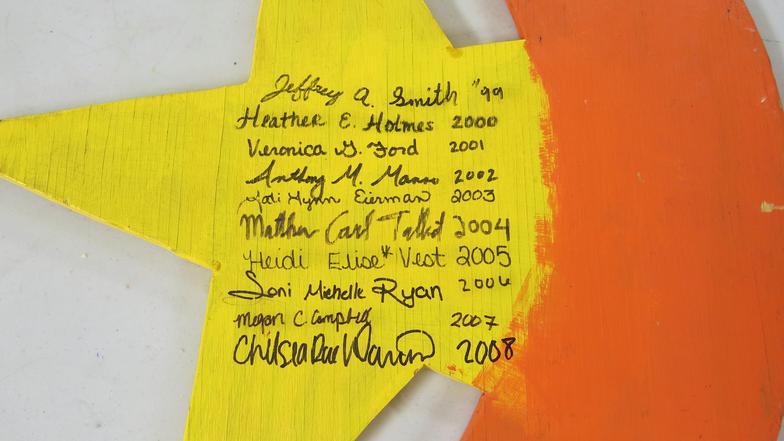 Jeffrey A. Smith "99
Heather E. Holmes 2000
Veronica G. Ford 2001
Anthony M. Manno 2002
Kati Lynn Eierman 2003
Matthew Carl 2004
Heidi Elise* Vest 2005
Loni Michelle Ryan 2006
Megan C. Campbell 2007
Chelsea Rae 2008